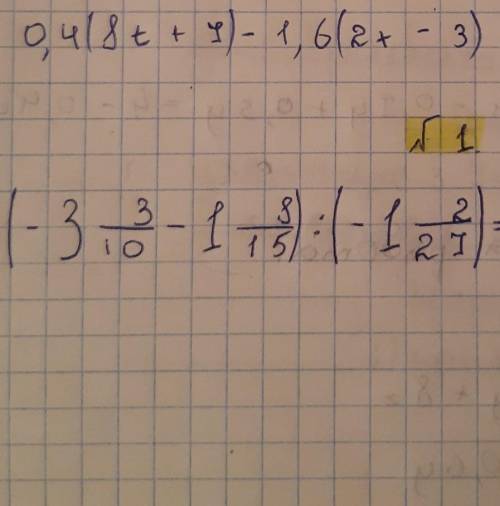 0,4(8t + 7) - 1,6(2t - 3)
√ 1.
(- 3 3/10 - 1 8/15) : (- 1 2/27) =